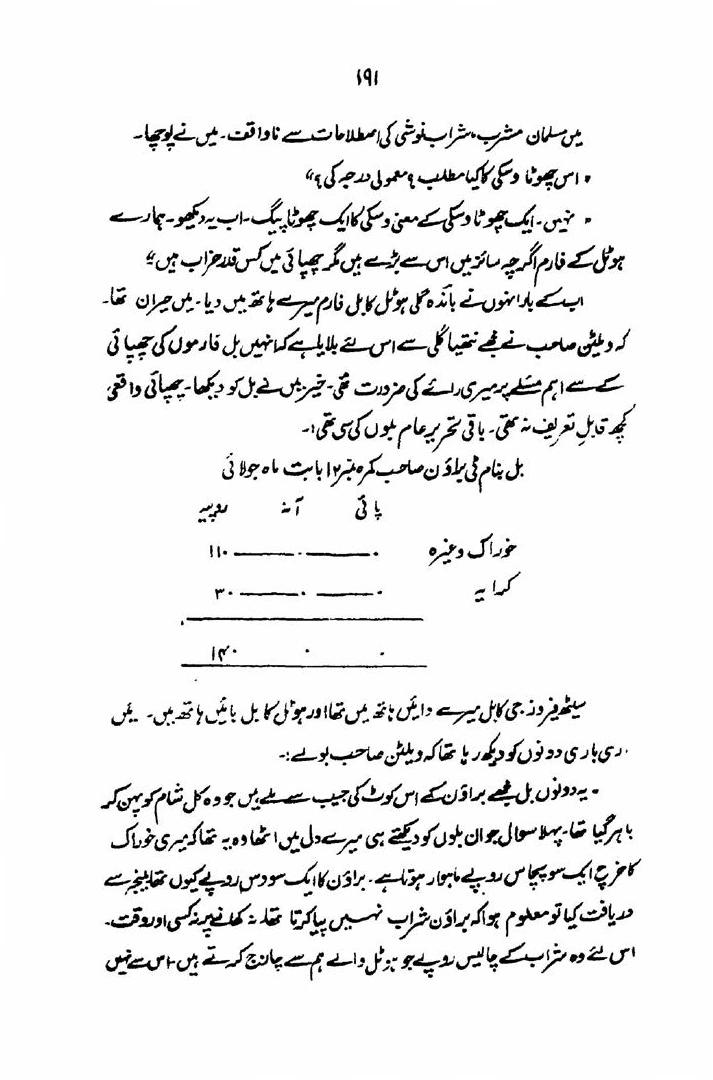 ۱۹۱
میں مسلمان مشرب، شراب نوشی کی اصطلاحات سے ناواقف۔ میں نے پوچھا۔
" اس چھوٹا وسکی کا کیا مطلب؟ معمولی درجہ کی؟"
" نہیں۔ ایک چھوٹا وسکی کے معنی وسکی کا ایک چھوٹا پیگ۔ اب یہ دیکھو۔ ہمارے
ہوٹل کے فارم اگرچہ سائز میں اس سے بڑے ہیں مگر چھپائی میں کس قدر خراب ہیں"
اب کے بار انہوں نے باندہ گلی ہوٹل کا بل فارم میرے ہاتھ میں دیا۔ میں حیران تھا۔
کہ ولیٹن صاحب نے مجھے نتھیا گلی سے اس لئے بلایا ہے کہ انہیں بل فارموں کی چھپائی
کے سے اہم مسئلے پر میری رائے کی ضرورت تھی۔ خیر میں نے بل کو دیکھا۔ چھپائی واقعی
کچھ قابلِ تعریف نہ تھی۔ باقی تحریر عام بلوں کی سی تھی:۔
بل بنام ٹی براؤن صاحب کمرہ نمبر ۱۲ بابت ماہ جولائی
پائی آنہ روپیہ
خوراک وغیرہ ۰ — ۰ — ۱۱۰
کرایہ ۰ — ۰ — ۳۰
۰ ۰ ۱۴۰
سیٹھ فروز جی کا بل میرے دائیں ہاتھ میں تھا اور ہوٹل کا بل بائیں ہاتھ میں۔ میں
باری باری دونوں کو دیکھ رہا تھا کہ ویلٹن صاحب بولے:۔
" یہ دونوں بل مجھے براؤن کے اس کوٹ کی جیب سے ملے ہیں جو وہ کل شام کو پہن کر
باہر گیا تھا۔ پہلا سوال جو ان بلوں کو دیکھتے ہی میرے دل میں اٹھا وہ یہ تھا کہ میری خوراک
کا خرچ ایک سو پچاس روپے ماہوار ہوتا ہے۔ براؤن کا ایک سو دس روپے کیوں تھا مینیجر سے
دریافت کیا تو معلوم ہوا کہ براؤن شراب نہیں پیا کرتا تھا۔ نہ کھانے پر نہ کسی اور وقت۔
اس لئے وہ شراب کے چالیس روپے جو ہوٹل والے ہم سے چارج کرتے ہیں۔ اس سے نہیں